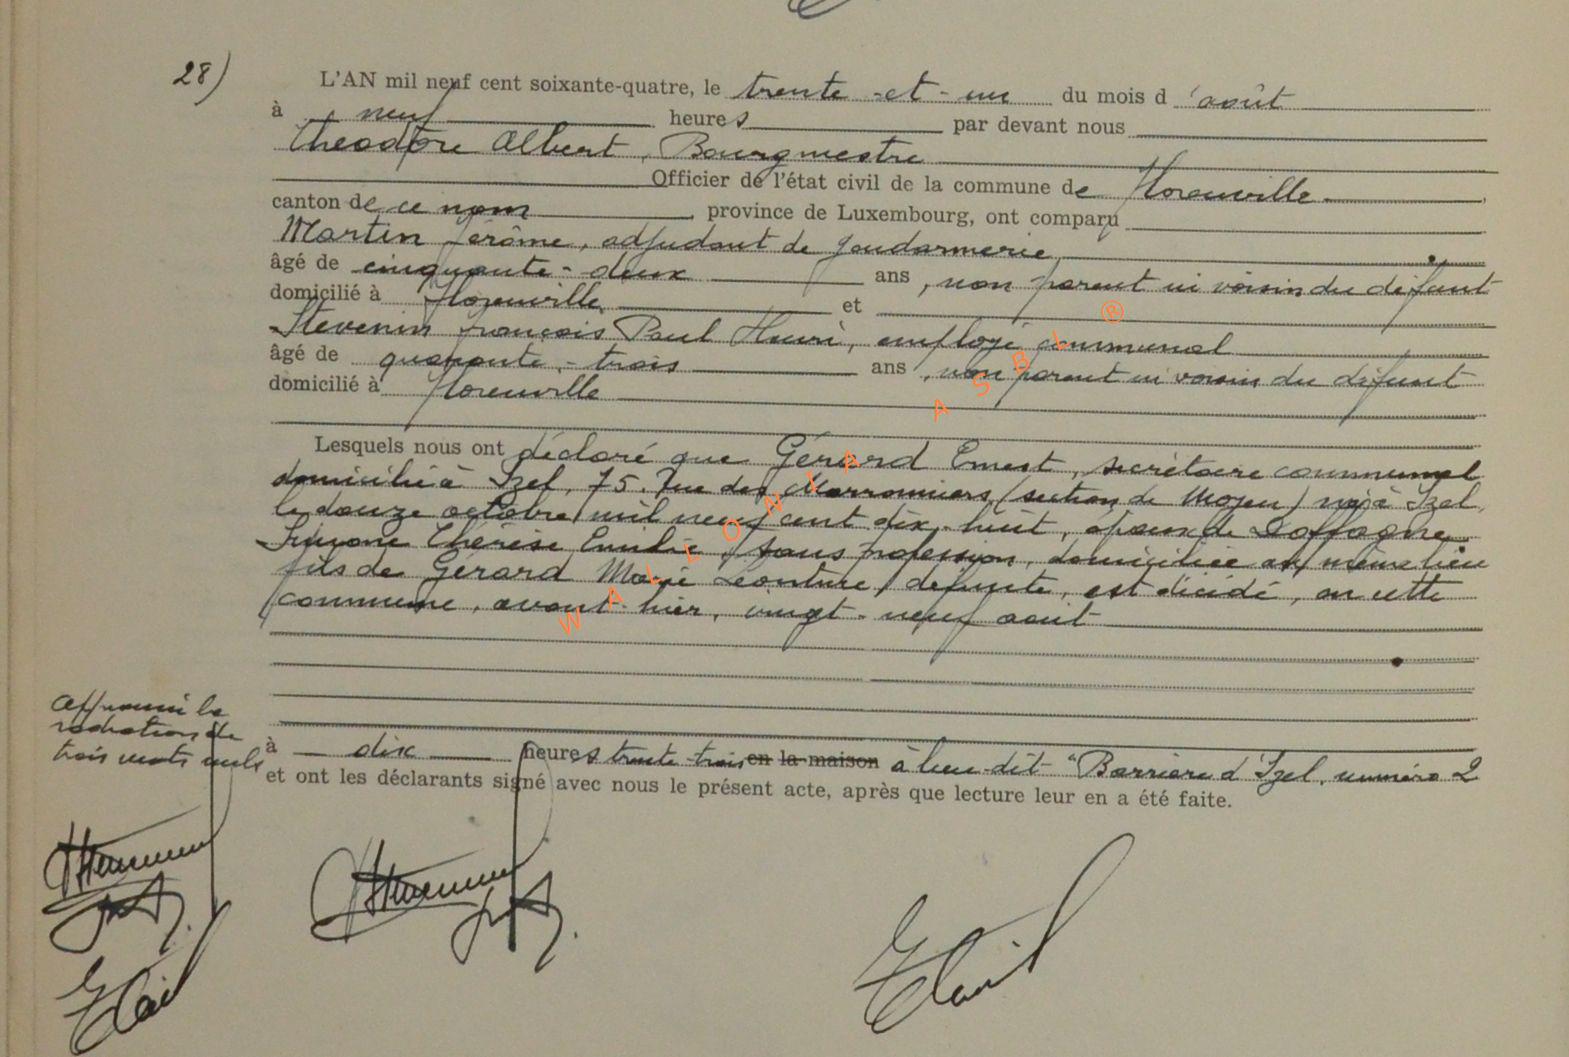 28)
L'AN mil neuf cent soixante-quatre, le trente-et-un du mois d'août
à neuf heures par devant nous
Théodore Albert, Bourgmestre
Officier de l'état civil de la commune de Florenville
canton de ce nom, province de Luxembourg, ont comparu
Martin Jérôme, adjudant de gendarmerie
âgé de cinquante-deux ans, non parent ni voisin du défunt
domicilié à Florenville et
Stevenin François Paul Henri, employé communal
âgé de quarante-trois ans, non parent ni voisin du défunt
domicilié à Florenville
Lesquels nous ont déclaré que Gérard Ernest, secrétaire communal
domicilié à Izel, 75, rue des Marronniers (section de Moyen) né à Izel,
le douze octobre mil neuf cent dix-huit, époux de
Simone Thérèse Emilie, sans profession, domiciliée au même lieu
fils de Gérard Marie Léontine, défunte, est décédé, en cette
commune, avant-hier, vingt-neuf août
à dix heures trente-trois en la maison à lieu-dit "Barrière d'Izel, numéro 2
et ont les déclarants signé avec nous le présent acte, après que lecture leur en a été faite.
Approuvé la
radiation de
trois mots nuls
WALLONIA ASBL ®